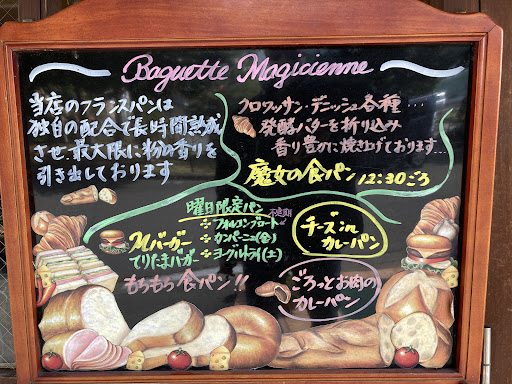 Baguette Magicienne
当店のフランスパンは
独自の配合で長時間熟成
させ、最大限に粉の香りを
引き出しております
クロワッサン・デニッシュ各種…
発酵バターを折り込み
香り豊かに焼き上げております…
魔女の食パン 12:30ごろ
曜日限定パン
不定期
フォルコンブロート
カンパーニュ(金)
ヨーグルトライ(土)
Mバーガー
てりたまバーガー
もちもち食パン!!
チーズin
カレーパン
ごろっとお肉の
カレーパン